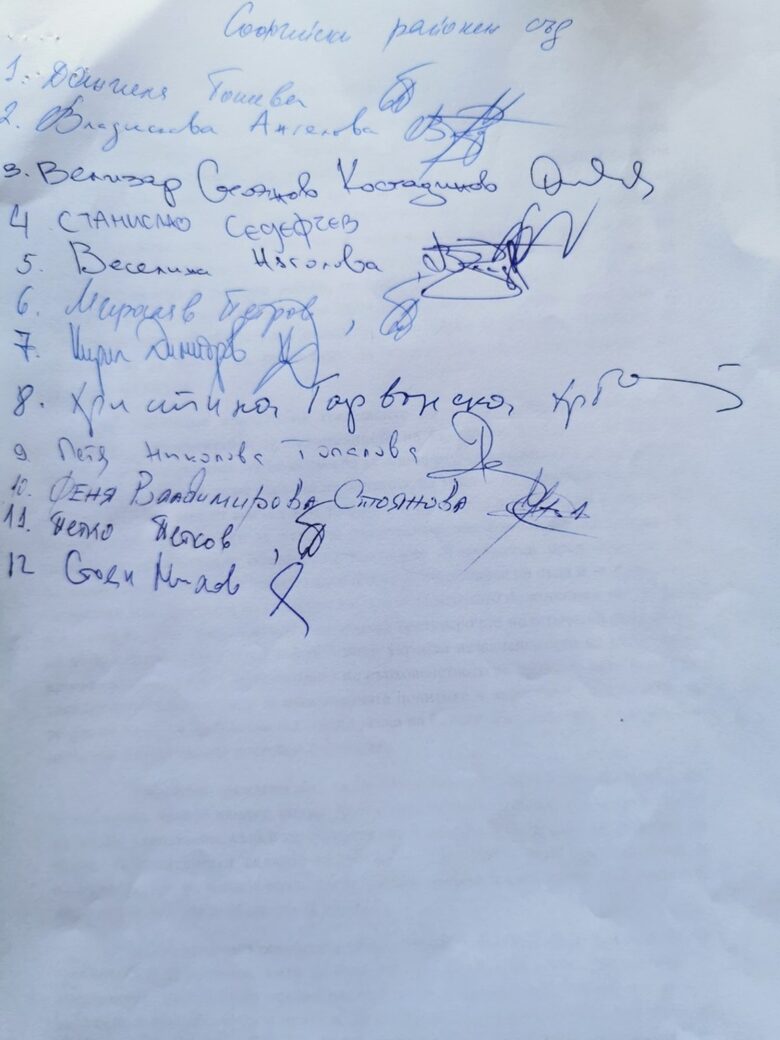 Софийски районен съд
1. Даниела Тошева
2. Владислава Ангелова
3. Велизар Стоянов Костадинов
4 СТАНИСЛАВ СЕДЕФЧЕВ
5. Веселина Няголова
6. Мирослав Петров,
7. Кирил Димитров
8. Християна Гарванска,
9 Петя Николова Топалова
10. Феня Владимирова Стоянова
11. Петко Петков,
12 Стоян